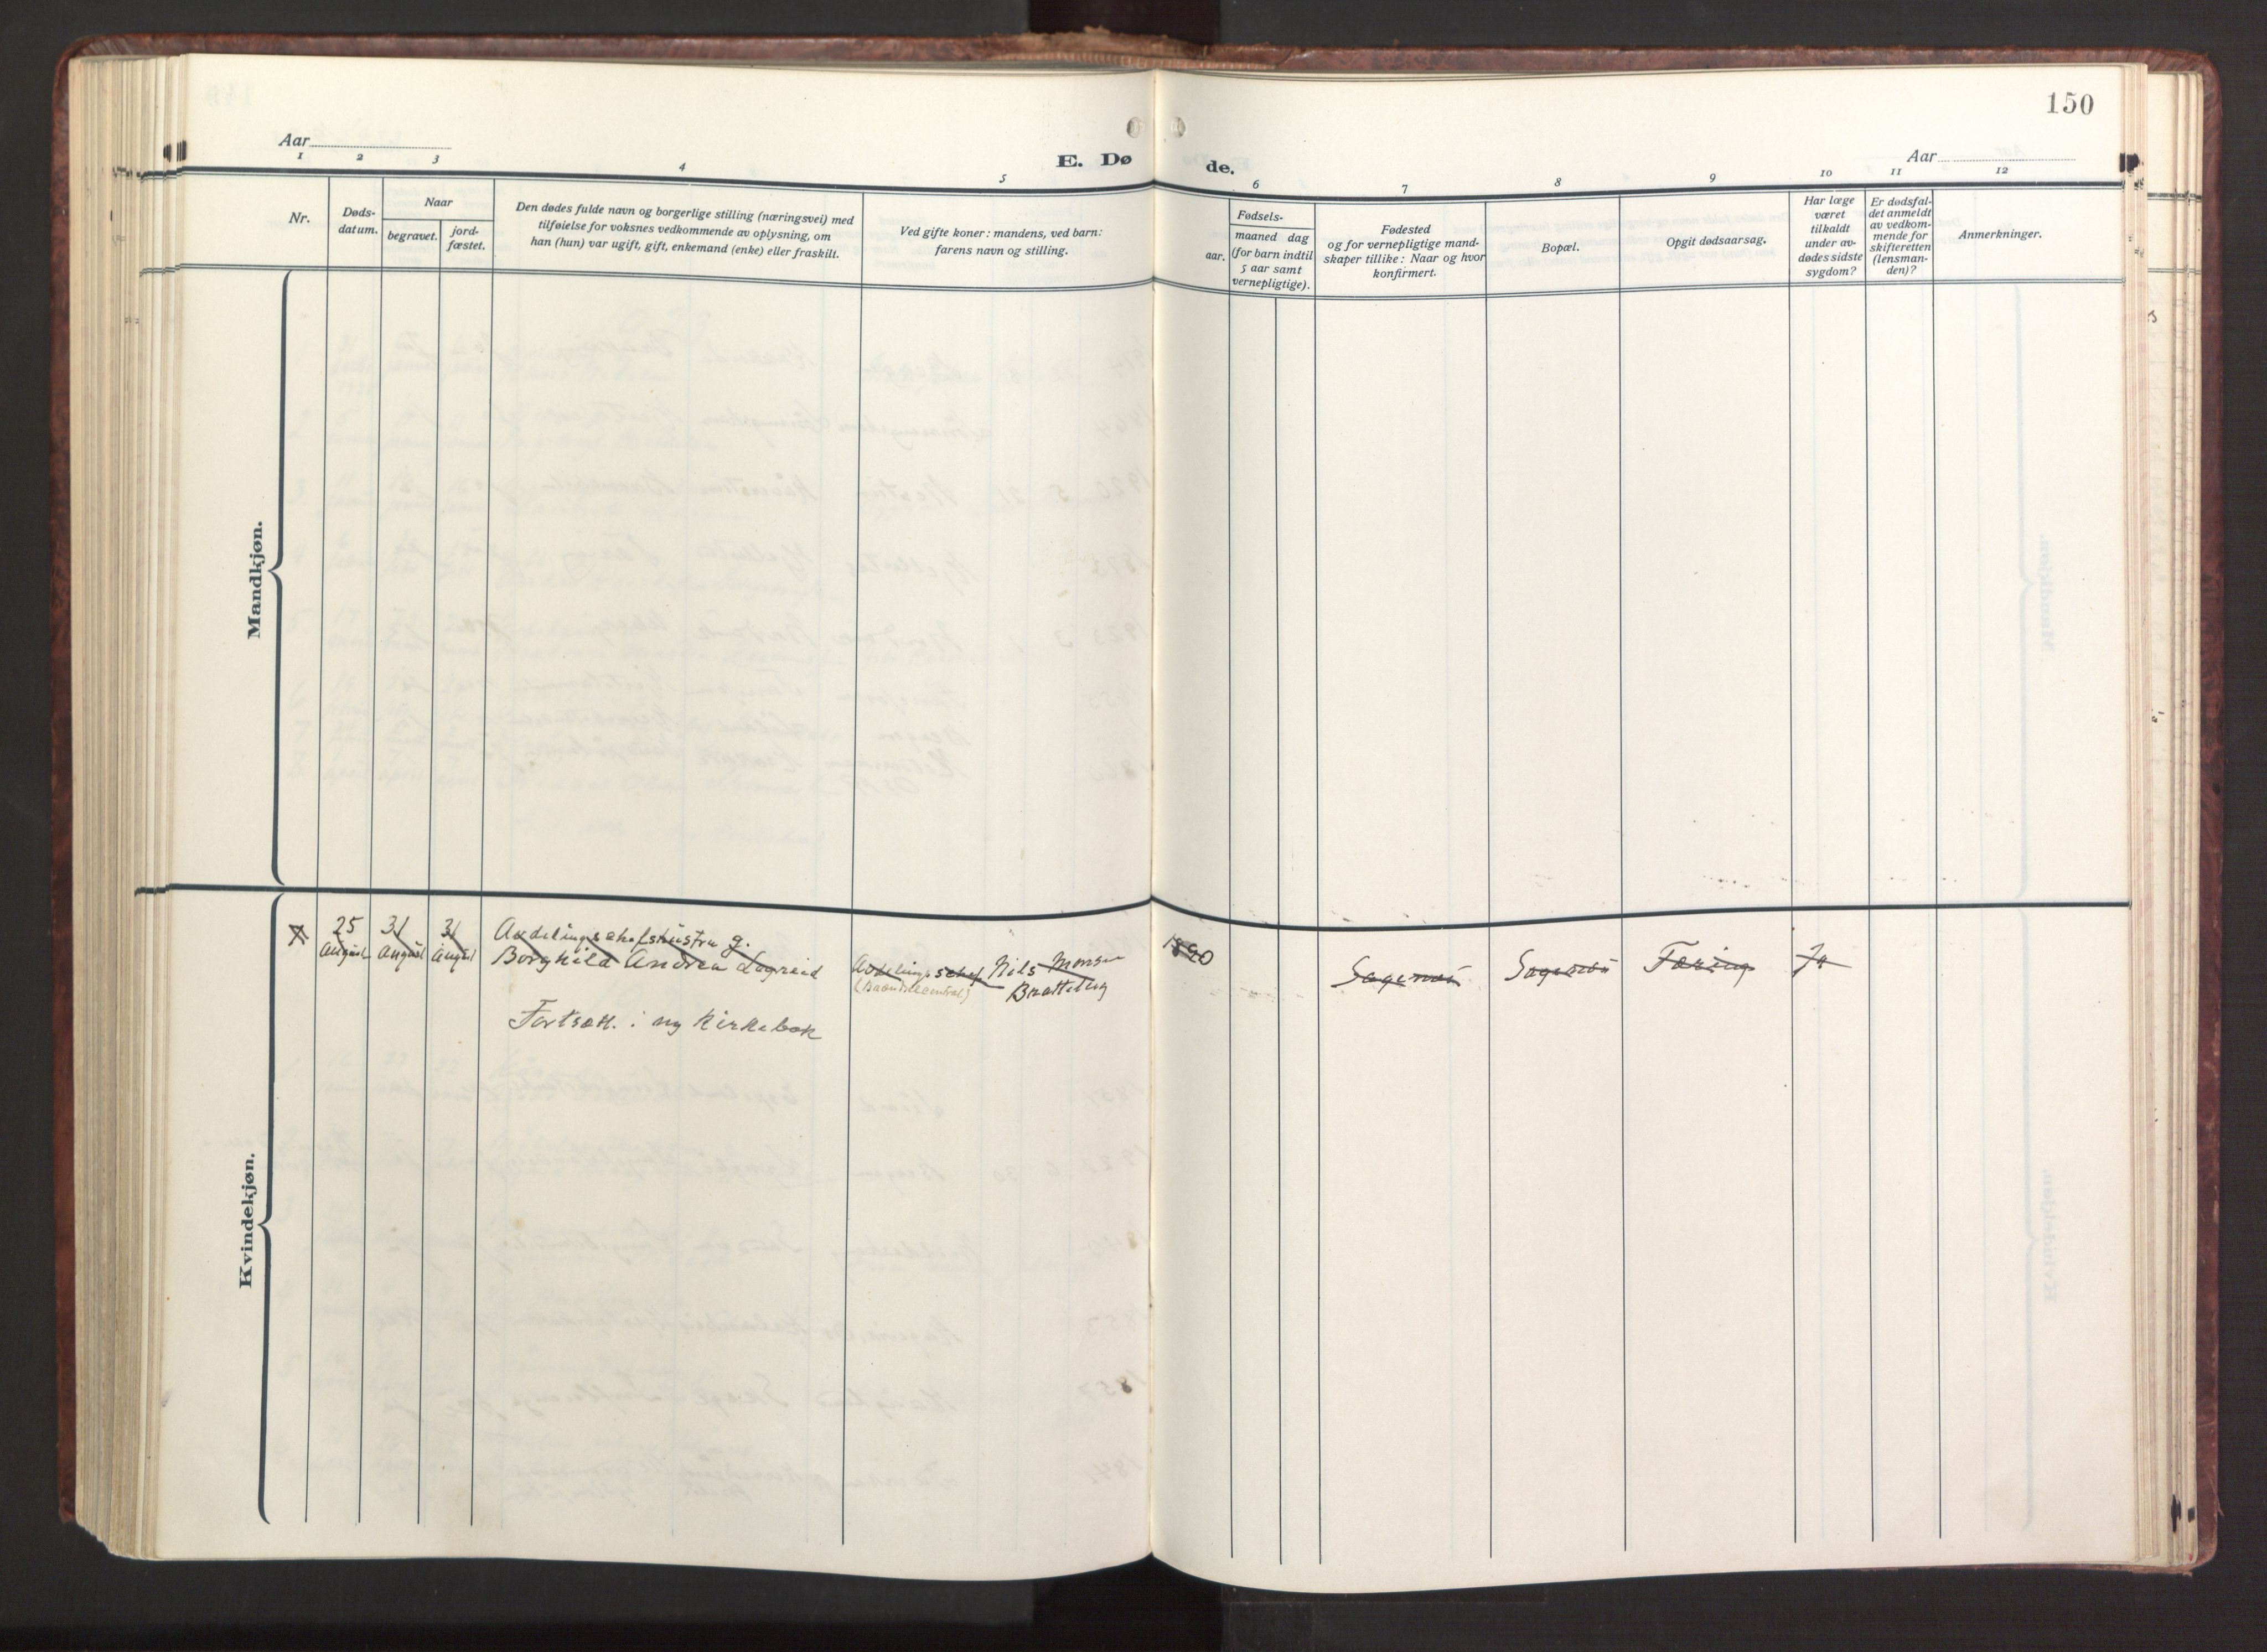 150
Aar
Aar
E. Dø
de.
1
2
3
4
5
6
7
8
9
10
11
12
Nr.
Døds-
datum.
Naar
begravet.
jord-
fæstet.
Den dødes fulde navn og borgerlige stilling (næringsvei) med
tilføielse for voksnes vedkommende av oplysning, om
han (hun) var ugift, gift, enkemand (enke) eller fraskilt.
Ved gifte koner: mandens, ved barn:
farens navn og stilling.
Fødsels-
aar.
maaned dag
(for barn indtil
5 aar samt
vernepligtige).
Fødested
og for vernepligtige mand-
skaper tillike: Naar og hvor
konfirmert.
Bopæl.
Opgit dødsaarsag.
Har læge
været
tilkaldt
under av-
dødes sidste
sygdom?
Er dødsfal-
det anmeldt
av vedkom-
mende for
skifteretten
(lensman-
den)?
Anmerkninger.
Mandkjøn.
Kvindekjøn.
25
August
31
August
31
August
Avdelingschefshustru g.
Borghild Andrea Lagreid
Avdelingschef Nils Monsen
Bratteberg
1890
Tæring
Ja
Fortsætt. i ny kirkebok